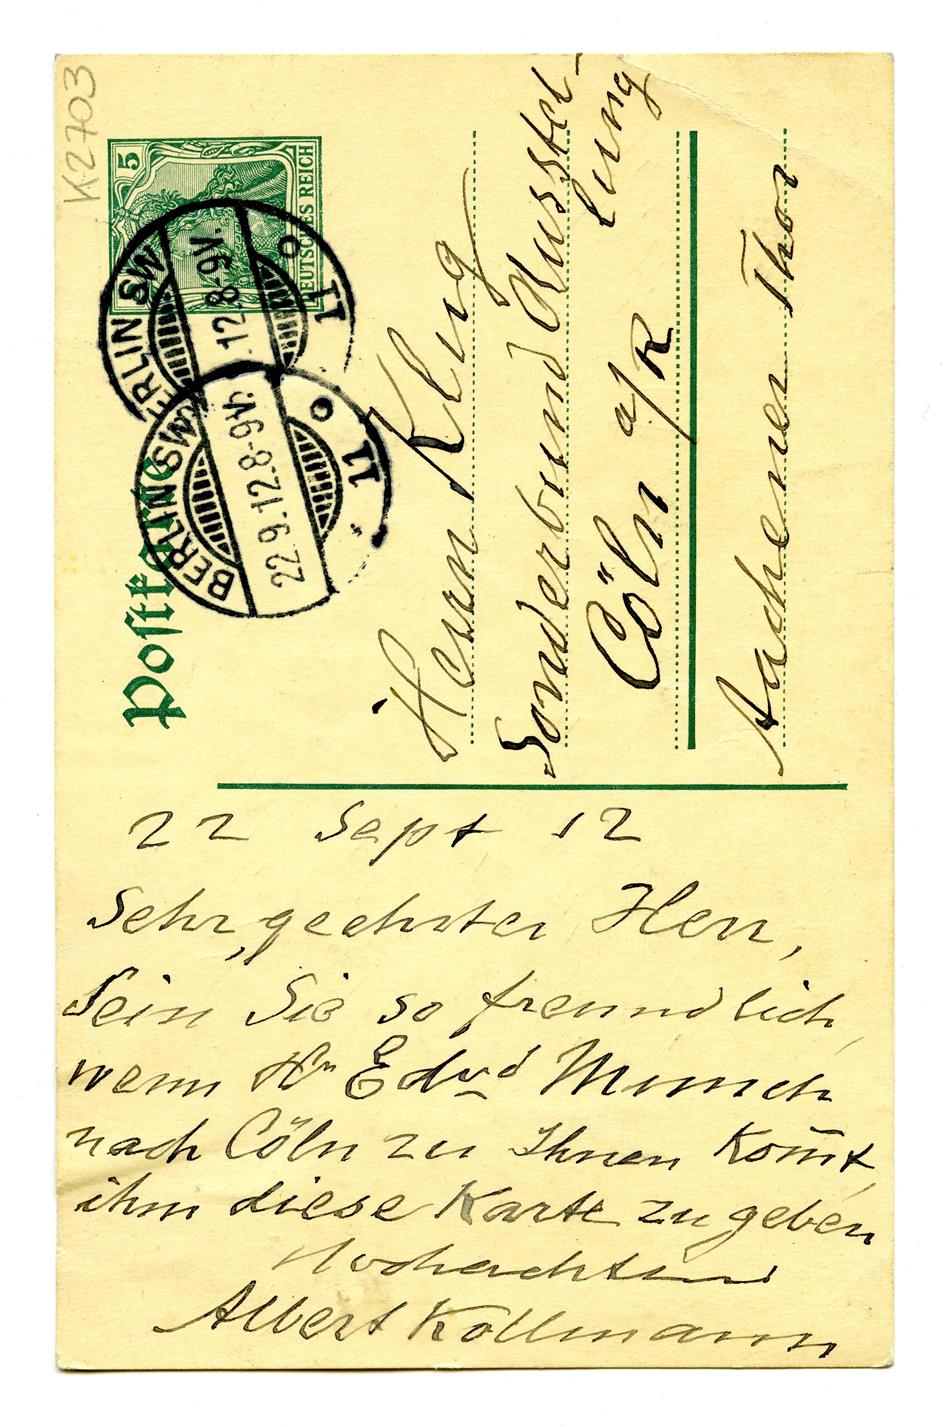 K2703
5
DEUTSCHES REICH
BERLIN SW
.12.8-9V.
11
BERLIN SW
22.9.12.8-9V.
11
Postkarte
Herrn Klug
Sonderbund Ausstel-
lung
Cöln a/R
Aachener Thor
22 Sept 12
Sehr geehrter Herr,
Sein Sie so freundlich,
wenn Hrn Edvd Munch
nach Cöln zu Ihnen kom̄t,
ihm diese Karte zu geben
Hochachtend
Albert Kollmann